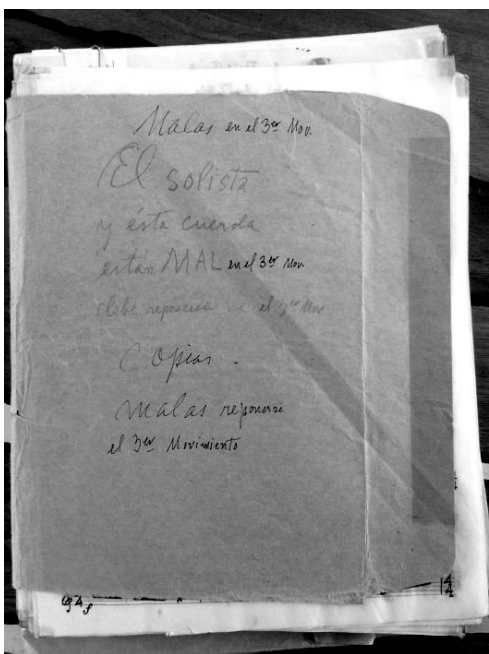 Malas en el 3er Mov.
El solista
y ésta cuerda
están MAL en el 3er Mov
debe reponerse el 3er Mov
Copias.
Malas reponerse
el 3er Movimiento